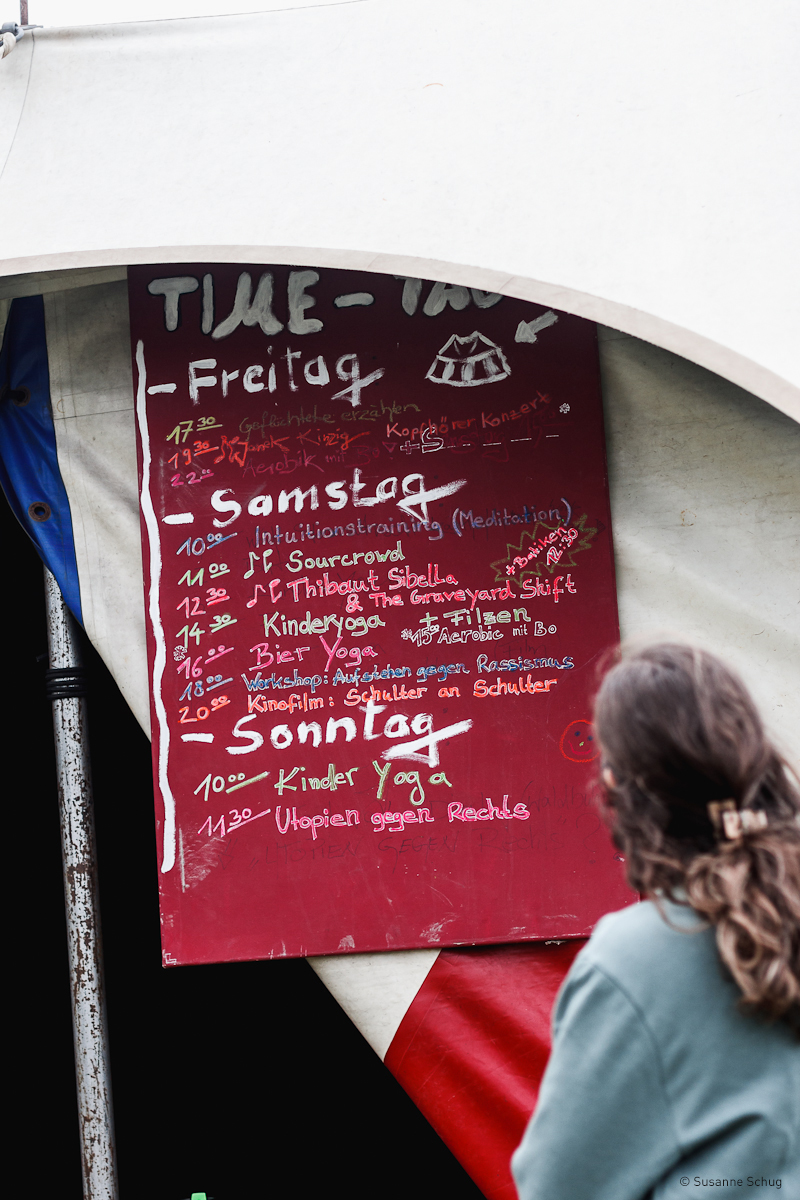 TIME-
- Freitag
17 30 Geflüchtete erzählen
19 30 Janek Kinzig Kopfhörer Konzert
22 Aerobik mit Bo
- Samstag
10 00 Intuitionstraining (Meditation)
11 00 Sourcrowd
+ Batiken 12:30
12 30 Thibaut Sibella
& The Graveyard Shift
14 30 Kinderyoga + Filzen
*15 00 Aerobic mit Bo
*16 00 Bier Yoga
18 00 Workshop: Aufstehen gegen Rassismus
20 00 Kinofilm: Schulter an Schulter
- Sonntag
10 00 Kinder Yoga
11 30 Utopien gegen Rechts
© Susanne Schug